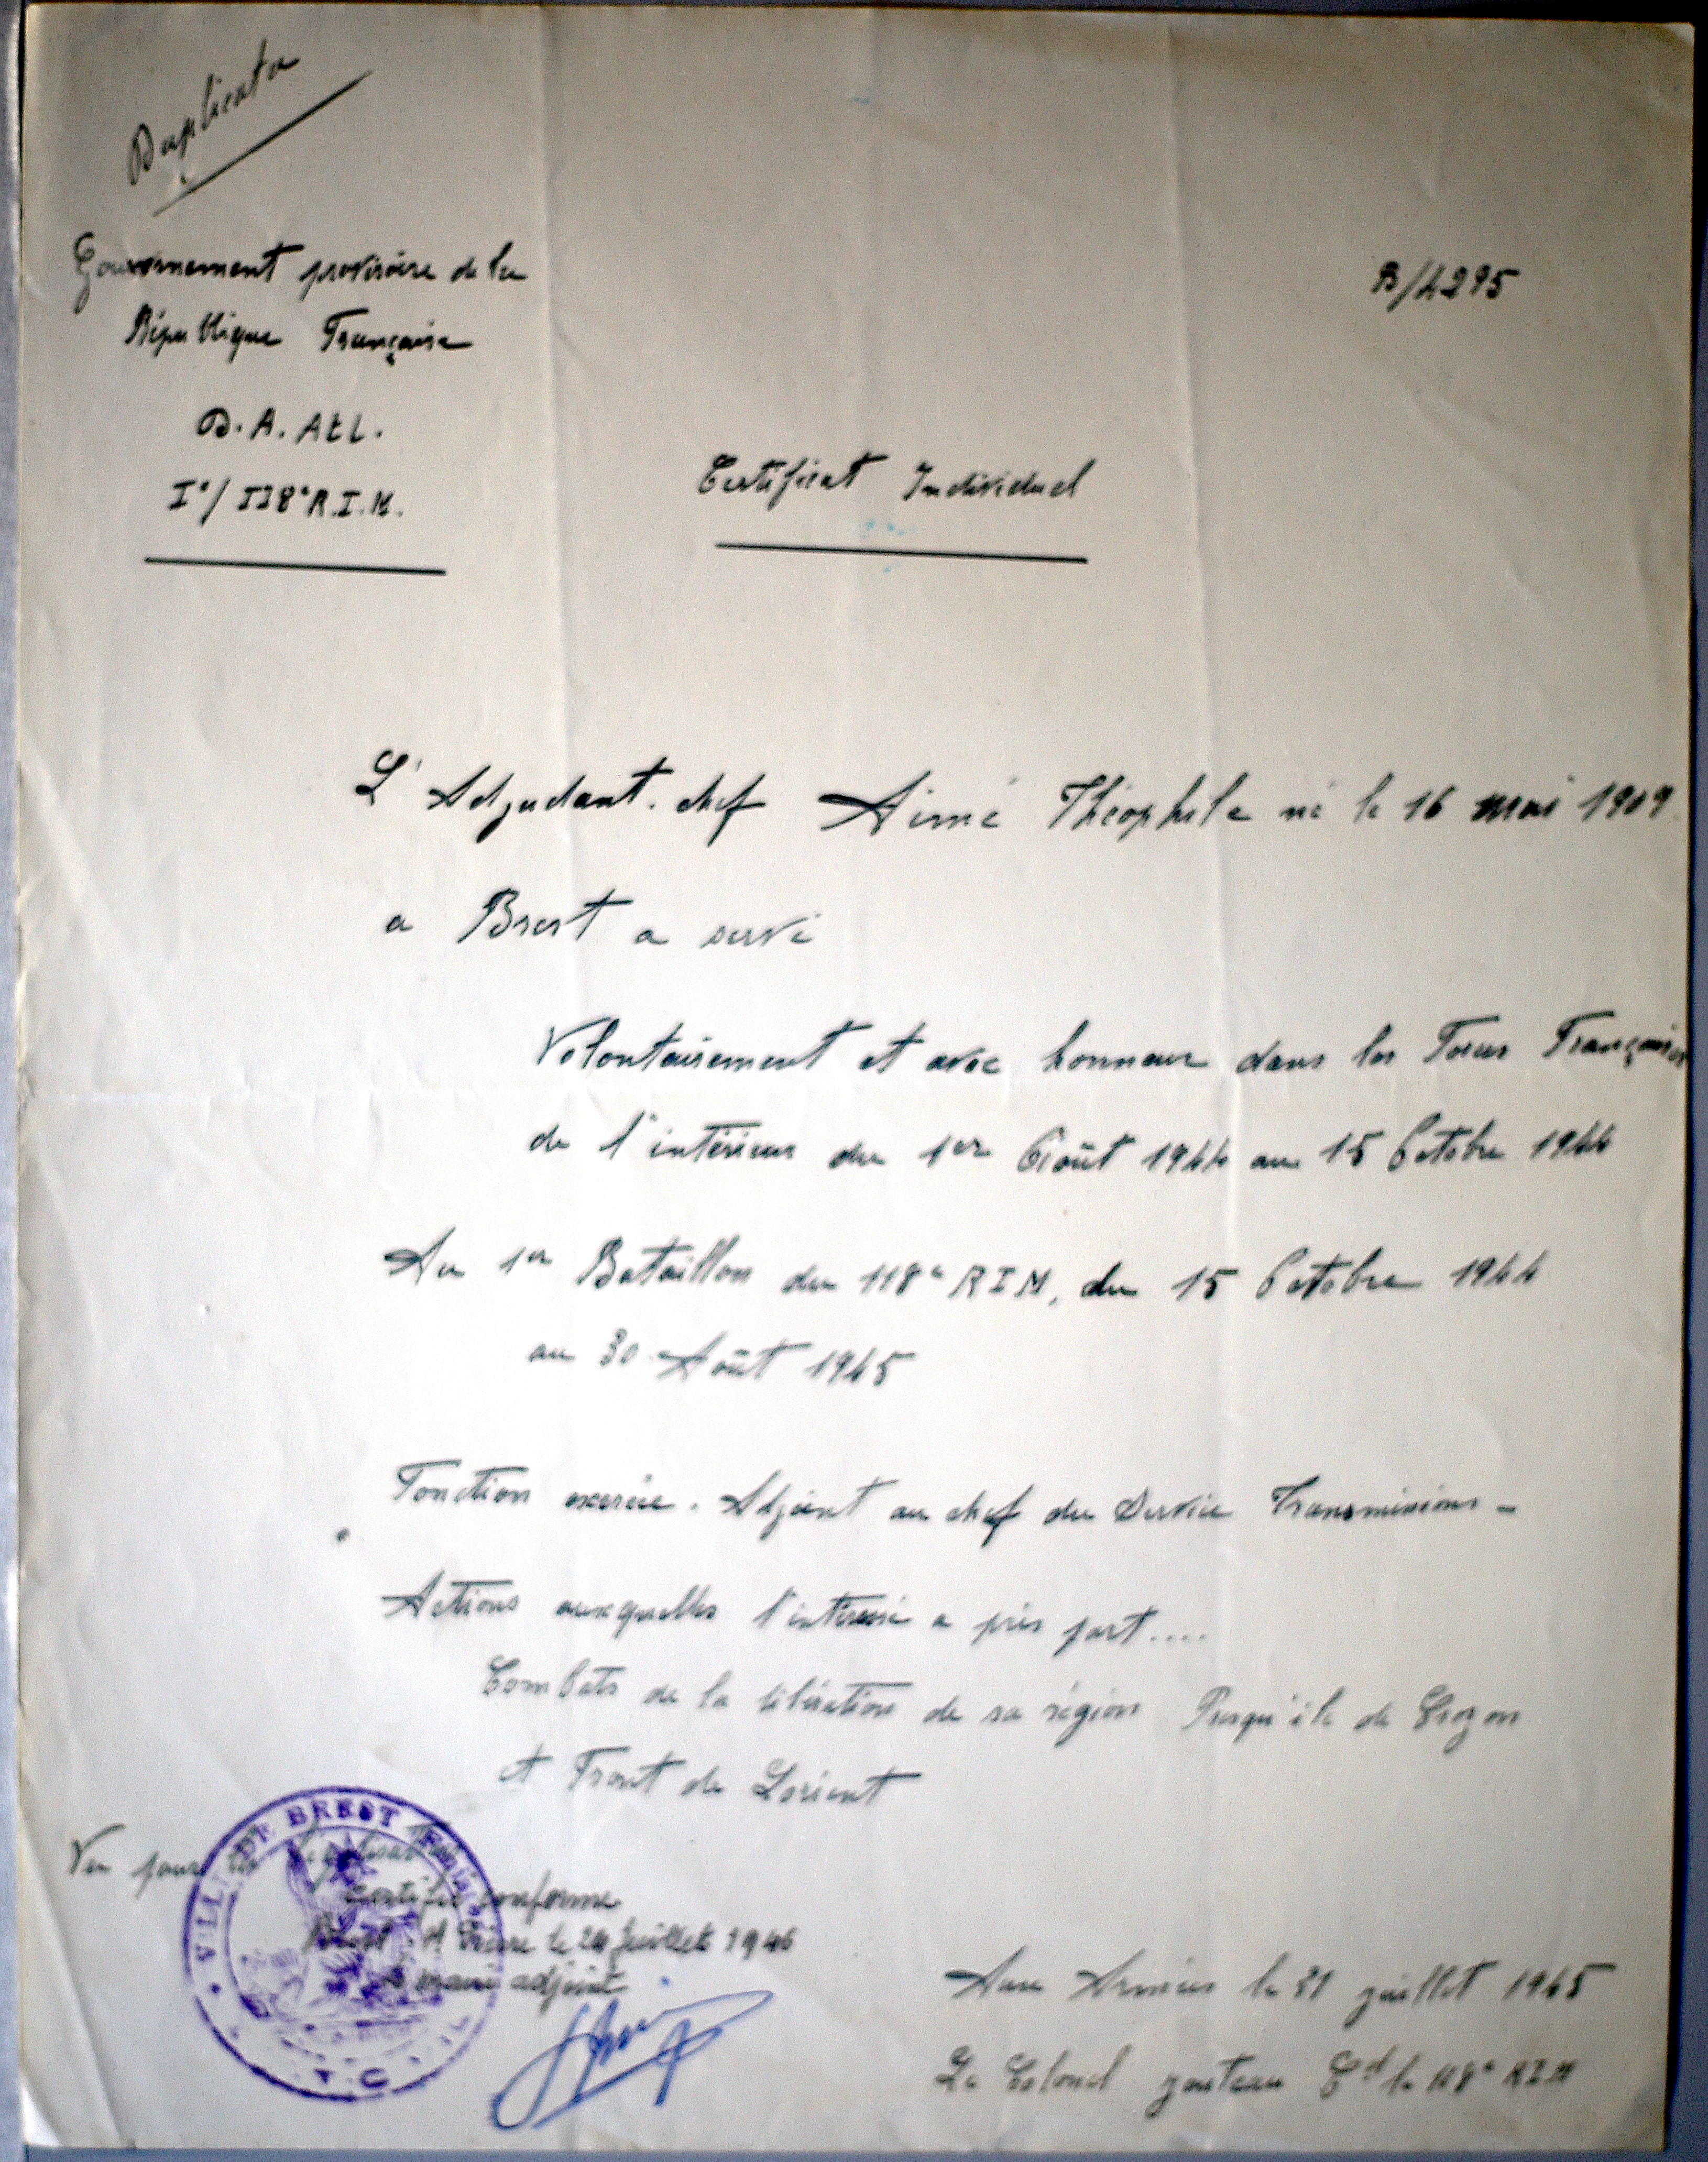 Duplicata
Gouvernement provisoire de la
République Française
B/4295
D. A. Atl.
I°/ II8° R.I.M.
Certificat Individuel
L' Adjudant. chef Aimé Théophile né le 16 mai 1909
a Brest a servi
Volontairement et avec honneur dans les Forces Françaises
de l'intérieur du 1er Août 1944 au 15 Octobre 1944
Au 1er Bataillon du 118e RIM, du 15 Octobre 1944
au 30 Août 1945
Fonction exercée. Adjoint au chef du Service Transmissions -
Actions auxquelles l'intéressé a pris part....
Combats de la libération de sa région Presqu'île de Crozon
et Front de Lorient
Vu pour la légalisation
VILLE DE BREST
certifié conforme
Brest St Pierre le 24 Juillet 1946
le maire adjoint
Aux Armées le 31 juillet 1945
Le Colonel Cdt le 118e RIM